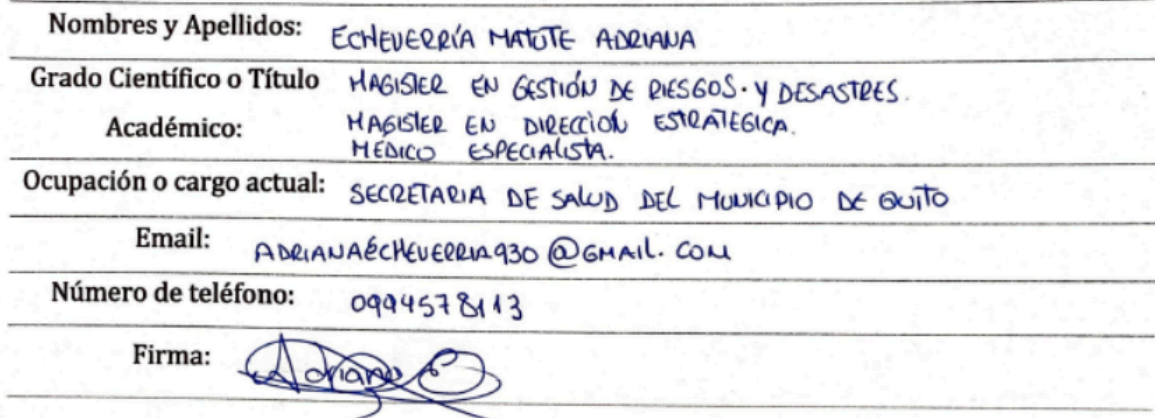 Nombres y Apellidos: ECHEVERRÍA MATUTE ADRIANA
Grado Científico o Título MAGISTER EN GESTIÓN DE RIESGOS. Y DESASTRES.
Académico: MAGISTER EN DIRECCIÓN ESTRATEGICA.
MÉDICO ESPECIALISTA.
Ocupación o cargo actual: SECRETARIA DE SALUD DEL MUNICIPIO DE QUITO
Email: ADRIANAECHEVERRIA930@GMAIL.COM
Número de teléfono: 0994578113
Firma: Adriana E